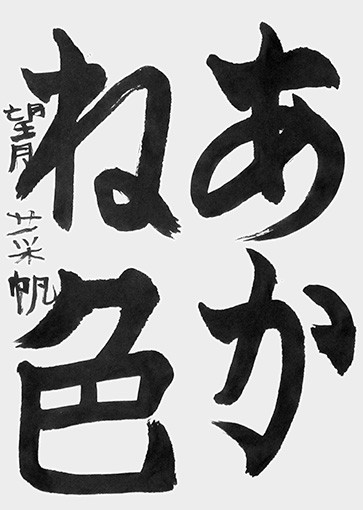 あか
ね色
望月菜帆